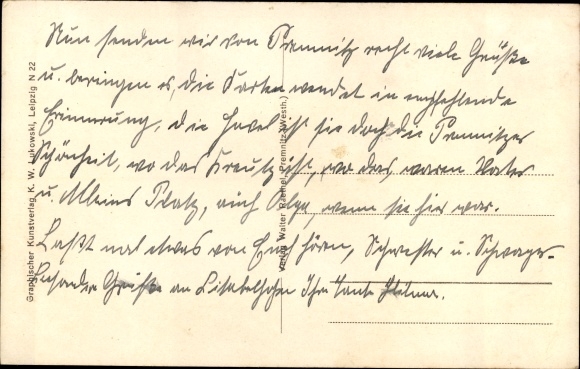 Nun senden wir von Premnitz recht viele Grüße
u. bringen es, die Karten wendet in empfehlende
Erinnerung, die Havel ist sie doch die Premnitzer
Schönheit, wo das Kreutz ist, wo das, waren Vater
u. Platz, auch Olga, wenn sie hier war.
Laßt mal etwas von Euch hören, Schwester u. Schwager.
Besondere Grüße an Ihre Tante
Graphischer Kunstverlag K. W. Lutkowski, Leipzig N 22
Verlag Walter Premnitz (Westh.)